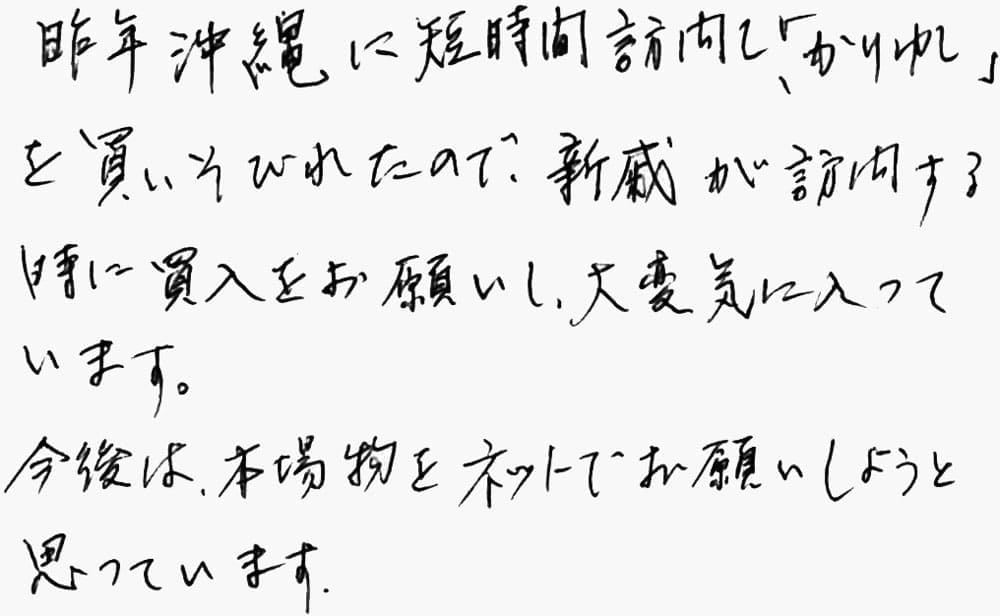 昨年沖縄に短時間訪問し、「かりゆし」
を買いそびれたので、親戚が訪問する
時に買入をお願いし、大変気に入って
います。
今後は、本場物をネットでお願いしようと
思っています.